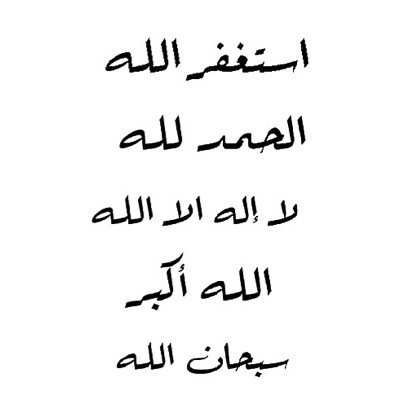 استغفر الله
الحمد لله
لا إله الا الله
الله أكبر
سبحان الله